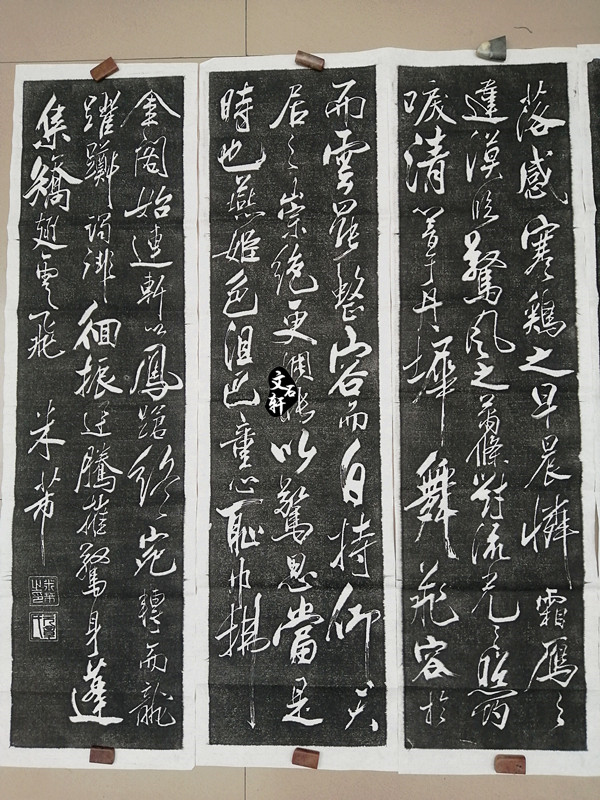 落感寒鷄之早晨憐霜鴈之
違漠臨驚風之蕭條對流光之照灼
唳清響于丹墀舞飛容於
而雲罷整容而自持仰天
居之崇絕更惆悵以驚思當是
時也燕姬色沮巴童心恥巾拂
金閣始連軒以鳳蹌終宛轉而龍
躍躑躅徘徊振迅騰摧驚身蓬
集矯翅雲飛 米芾
米芾之印
文石軒